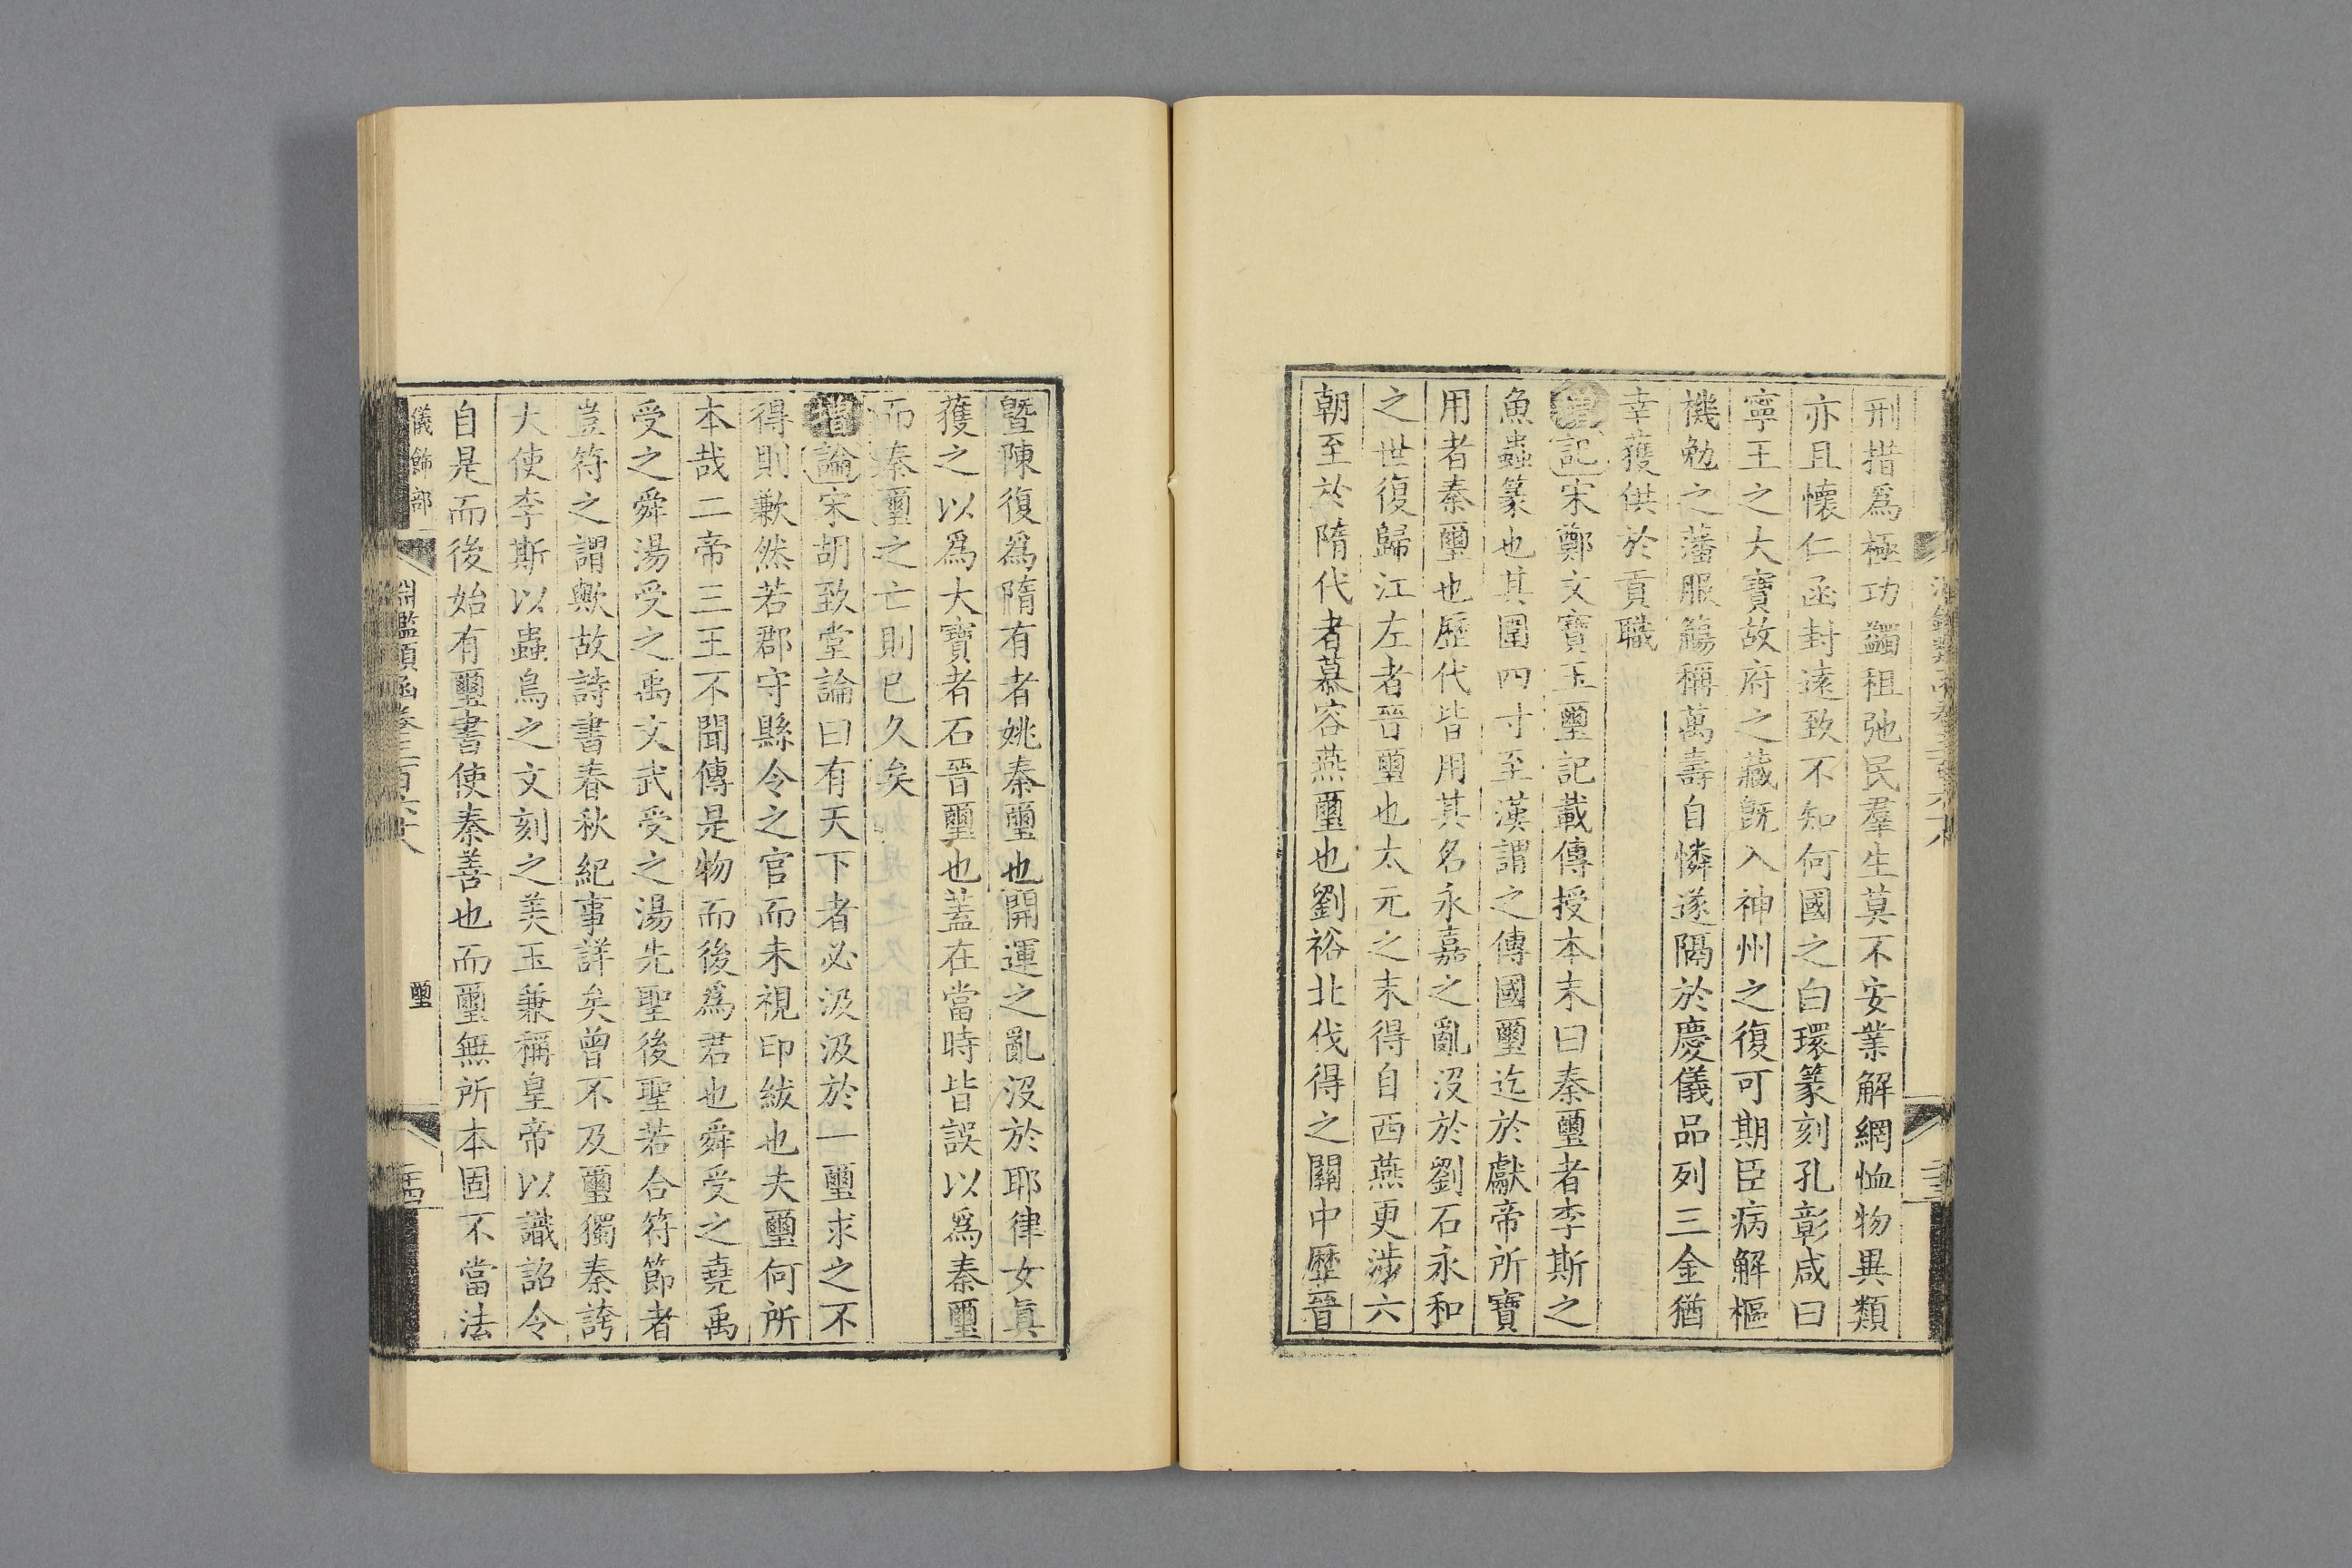 刑措爲極功蠲租弛民羣生莫不安業解網恤物異類
亦且懷仁函封遠致不知何國之白環篆刻孔彰咸曰
寧王之大寶故府之藏旣入神州之復可期臣病解樞
機勉之藩服觴稱萬壽自憐遂隔於慶儀品列三金猶
幸獲供於貢職
增記宋鄭文寶玉璽記載傳授本末曰秦璽者李斯之
魚蟲篆也其圍四寸至漢謂之傳國璽迄於獻帝所寶
用者秦璽也歷代皆用其名永嘉之亂沒於劉石永和
之世復歸江左者晉璽也太元之末得自西燕更涉六
朝至於隋代者慕容燕璽也劉裕北伐得之關中歷晉
暨陳復爲隋有者姚秦璽也開運之亂沒於耶律女眞
獲之以爲大寶者石晉璽也蓋在當時皆誤以爲秦璽
而秦璽之亡則已久矣
增論宋胡致堂論曰有天下者必汲汲於一璽求之不
得則歉然若郡守縣令之官而未視印紱也夫璽何所
本哉二帝三王不聞傳是物而後爲君也舜受之堯禹
受之舜湯受之禹文武受之湯先聖後聖若合符節者
豈符之謂歟故詩書春秋紀事詳矣曾不及璽獨秦誇
大使李斯以蟲鳥之文刻之美玉兼稱皇帝以識詔令
自是而後始有璽書使秦善也而璽無所本固不當法
儀飾部 淵鑑類函卷三百六十八 璽